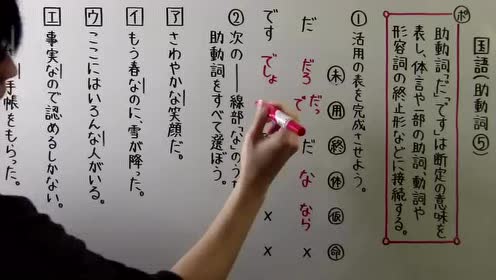 国語(助動詞⑤)
ポ 助動詞「だ」「です」は断定の意味を
表し、体言や一部の助詞、動詞や
形容詞の終止形などに接続する。
① 活用の表を完成させよう。
未 用 終 体 仮 命
だ だろ だっ で だ な なら ×
です でしょ × ×
② 次の━━線部「な」のう
助動詞をすべて選ぼう。
ア さわやかな笑顔だ。
イ もう春なのに、雪が降った。
ウ ここにはいろんな人がいる。
エ 事実なので認めるしかない。
手帳をもらった。